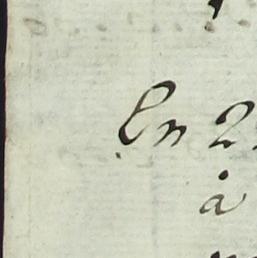 En 2
à